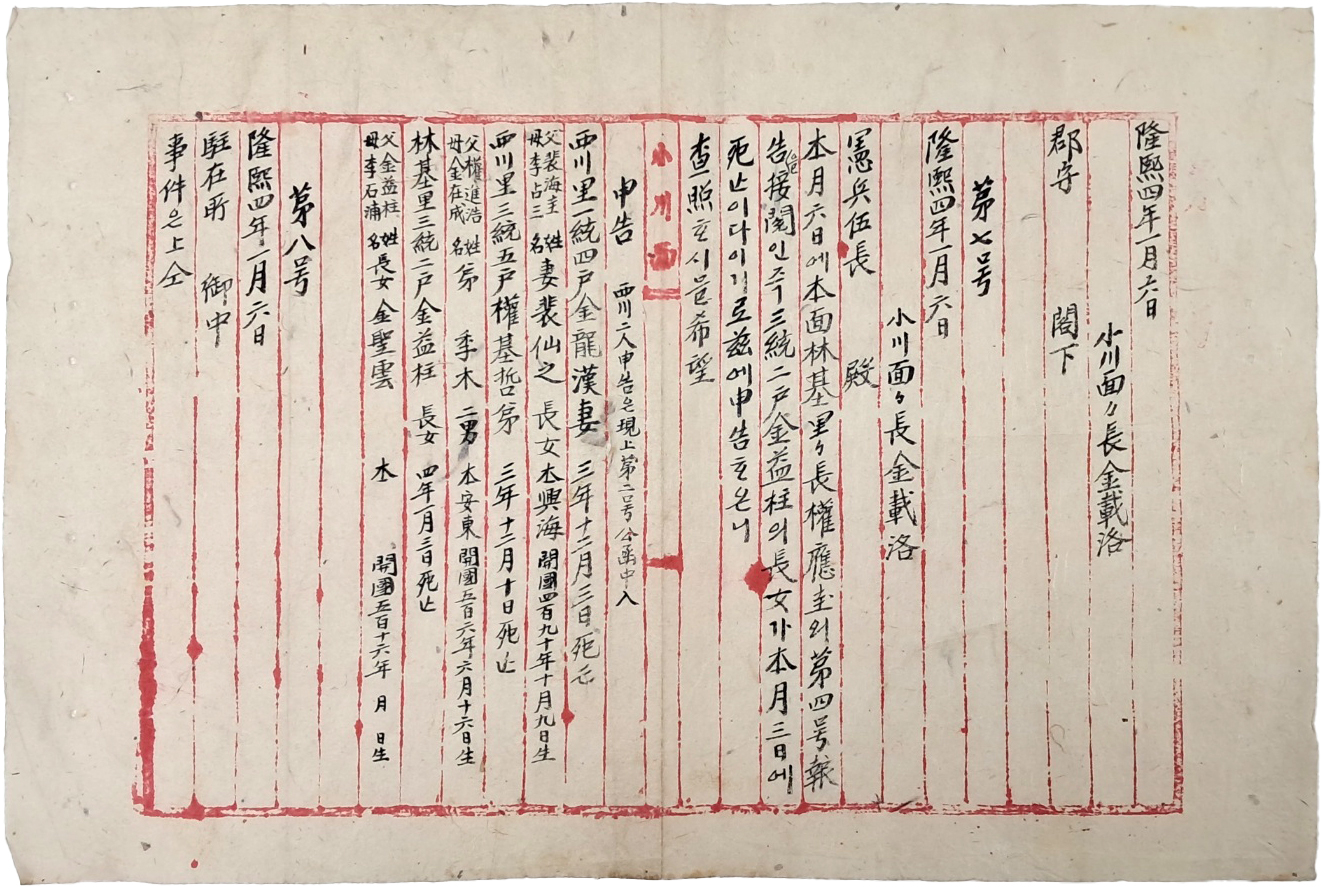 隆熙四年一月六日
小川面々長金載洛
郡守 閣下
第七号
隆熙四年一月六日
小川面々長金載洛
憲兵伍長 殿
本月六日에本面林基里々長權應圭의第四号報
告을接閱인주三統二戶金益柱의長女가本月三日에
死亡이다이기로玆에申告하오니
査照하시믈希望
小川面
申告 西川二人申告은現上第二号公函中入
西川里一統四戶金龍漢妻 三年十二月三日死亡
父裴海圭 母李占三 姓名 妻裴仙之 長女 本興海 開國四百九十年十月九日生
西川里三統五戶權基哲弟 三年十二月十日死亡
父權進浩 母金在成 姓名 弟 季木 二男 本安東 開國五百六年六月十六日生
林基里三統二戶金益柱 長女 四年一月三日死亡
父金益柱 母李石浦 姓名 長女 金聖雲 本 開國五百十六年 月 日生
第八号
隆熙四年一月六日
駐在所 御中
事件은上仝